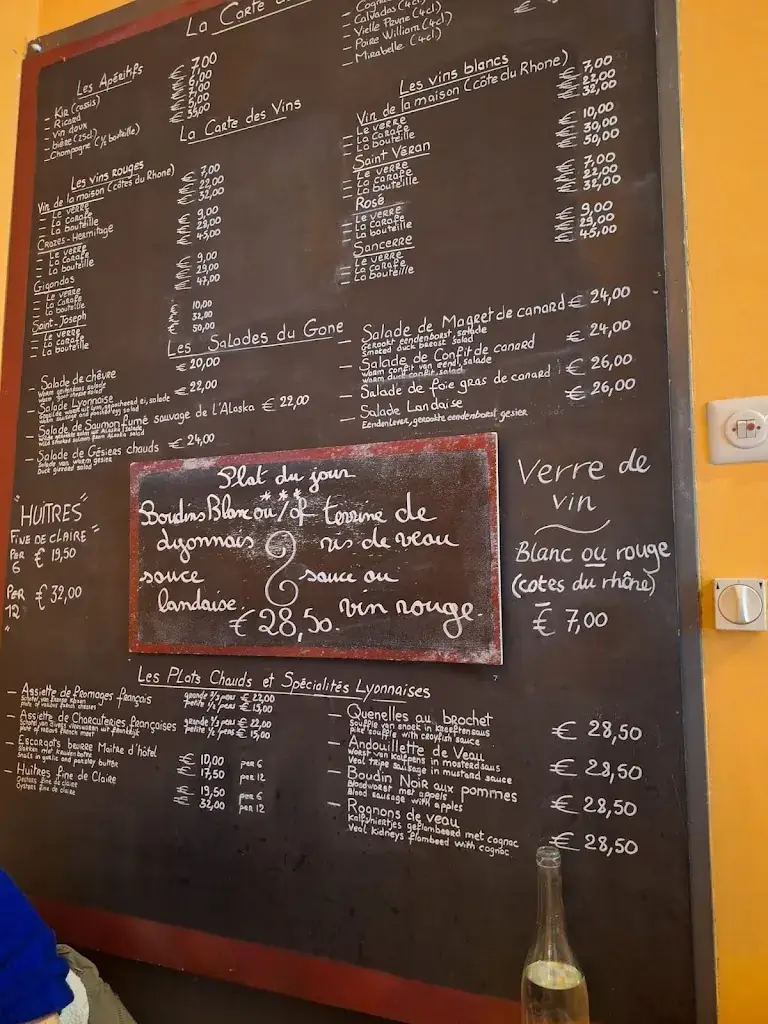 La Carte
Calvados (4cl)
Vielle Prune (4cl)
Poire William (4cl)
Mirabelle (4cl)
€
Les Apéritifs
- Kir (cassis)
- Ricard
- Vin doux
- bière (25cl)
- Champagne (½ bouteille)
€ 7,00
€ 5,00
€ 35,00
La Carte des Vins
Les vins rouges
Vin de la maison (côtes du Rhone)
- Le verre € 7,00
- La carafe € 22,00
- La bouteille € 32,00
Crozes-Hermitage
- Le verre € 9,00
- La carafe € 28,00
- La bouteille € 45,00
Gigondas
- Le verre € 9,00
- La carafe € 29,00
- La bouteille € 47,00
Saint-Joseph
- Le verre € 10,00
- La carafe € 32,00
- La bouteille € 50,00
Les vins blancs
Vin de la maison (côte du Rhone)
- Le verre € 7,00
- La carafe € 22,00
- La bouteille € 32,00
Saint Véran
- Le verre € 10,00
- La carafe € 30,00
- La bouteille € 50,00
Rosé
- Le verre € 7,00
- La carafe € 22,00
- La bouteille € 32,00
Sancerre
- Le verre € 9,00
- La carafe € 29,00
- La bouteille € 45,00
Les Salades du Gone
- Salade de chêvre € 20,00
- Salade Lyonnaise € 22,00
- Salade de Saumon fumé sauvage de l'Alaska € 22,00
- Salade de Gésiers chauds € 24,00
Salade van warm gesier
Duck gizzard salad
- Salade de Magret de canard € 24,00
Gerookt eendenborst, salade
Smoked duck breast salad
- Salade de Confit de canard € 24,00
Warm confit van eend, salade
Warm duck confit, salad
- Salade de foie gras de canard € 26,00
- Salade Landaise € 26,00
Eendenlever, gerookte eendenborst, gesier
"HUITRES"
FINE DE CLAIRE
PER 6 € 19,50
PER 12 € 32,00
Plat du jour
***
Boudins Blanc ou/of terrine de
lyonnais ris de veau
sauce sauce au
landaise vin rouge.
€ 28,50.
Verre de
vin
Blanc ou rouge
(cotes du rhône)
€ 7,00
Les Plats Chauds et Spécialités Lyonnaises
- Assiette de fromages français grande 2/3 pers € 22,00
plate of various french cheeses petite ½ pers € 15,00
- Assiette de Charcuteries françaises grande 2/3 pers € 22,00
plate of various french meat petite ½ pers € 15,00
- Escargots beurre Maitre d'hôtel € 10,00 per 6
Snails in garlic and parsley butter € 17,50 per 12
- Huitres fine de Claire € 19,50 per 6
Oesters fine de claire € 32,00 per 12
Oysters fine de claire
- Quenelles au brochet € 28,50
Souffle van snoek in kreeftensaus
pike souffle with crayfish sauce
- Andouillette de Veau € 28,50
Worst van kalfpens in mosterdsaus
Veal tripe sausage in mustard sauce
- Boudin Noir aux pommes € 28,50
Bloedworst met appels
Blood sausage with apples
- Rognons de veau € 28,50
Kalfsniertjes geflambeerd met cognac
Veal kidneys flambeed with cognac